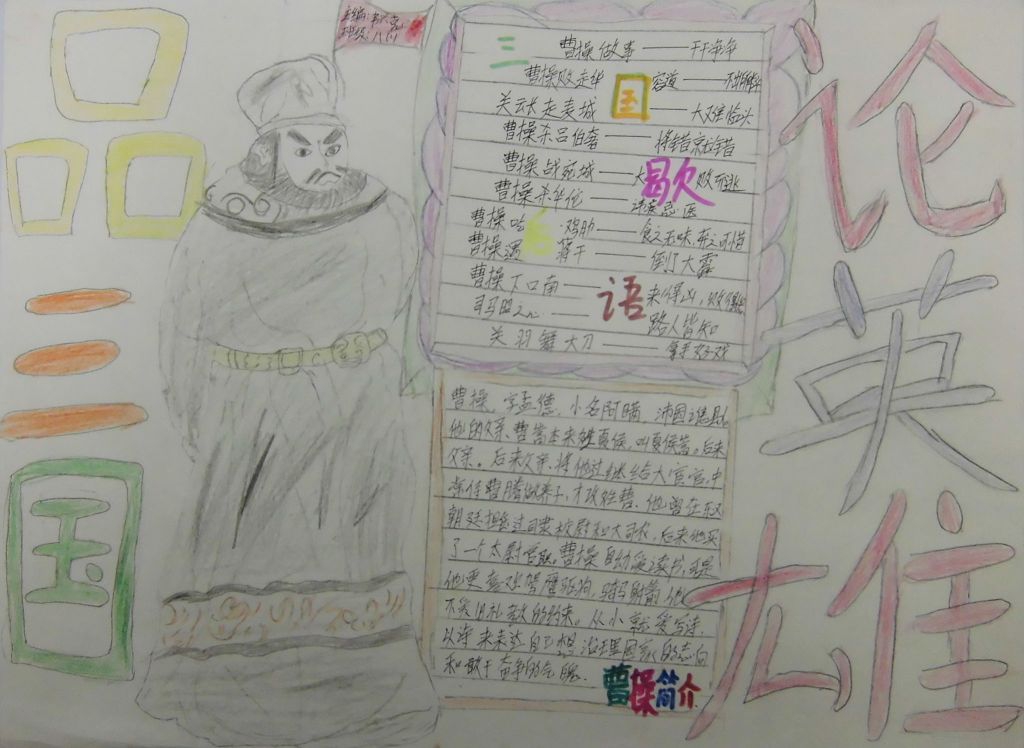 品三国
论英雄
主编:
班级:八(1)
三国歇后语
曹操做事——干干净净
曹操败走华容道——不出所料
关云长走麦城——大难临头
曹操杀吕伯奢——将错就错
曹操战宛城——大败而逃
曹操杀华佗——讳疾忌医
曹操吃鸡肋——食之无味,弃之可惜
曹操遇蒋干——倒了大霉
曹操下江南——来得凶,败得惨
司马昭之心——路人皆知
关羽舞大刀——拿手好戏
曹操,字孟德,小名阿瞒,沛国谯县
他的父亲曹嵩本来姓夏侯,叫夏侯嵩。后来
父亲。后来父亲将他过继给大宦官、中
常侍曹腾做养子,才改姓曹。他曾在东汉
朝廷担当过司隶校尉和大司农,后来他买
了一个太尉官职。曹操自幼爱读书,可是
他更喜欢驾鹰驱狗,骑马射箭,他
不受旧礼教的约束。从小就爱写诗,
以诗来表达自己想治理国家的志向
和敢于奋争的气魄.
曹操简介